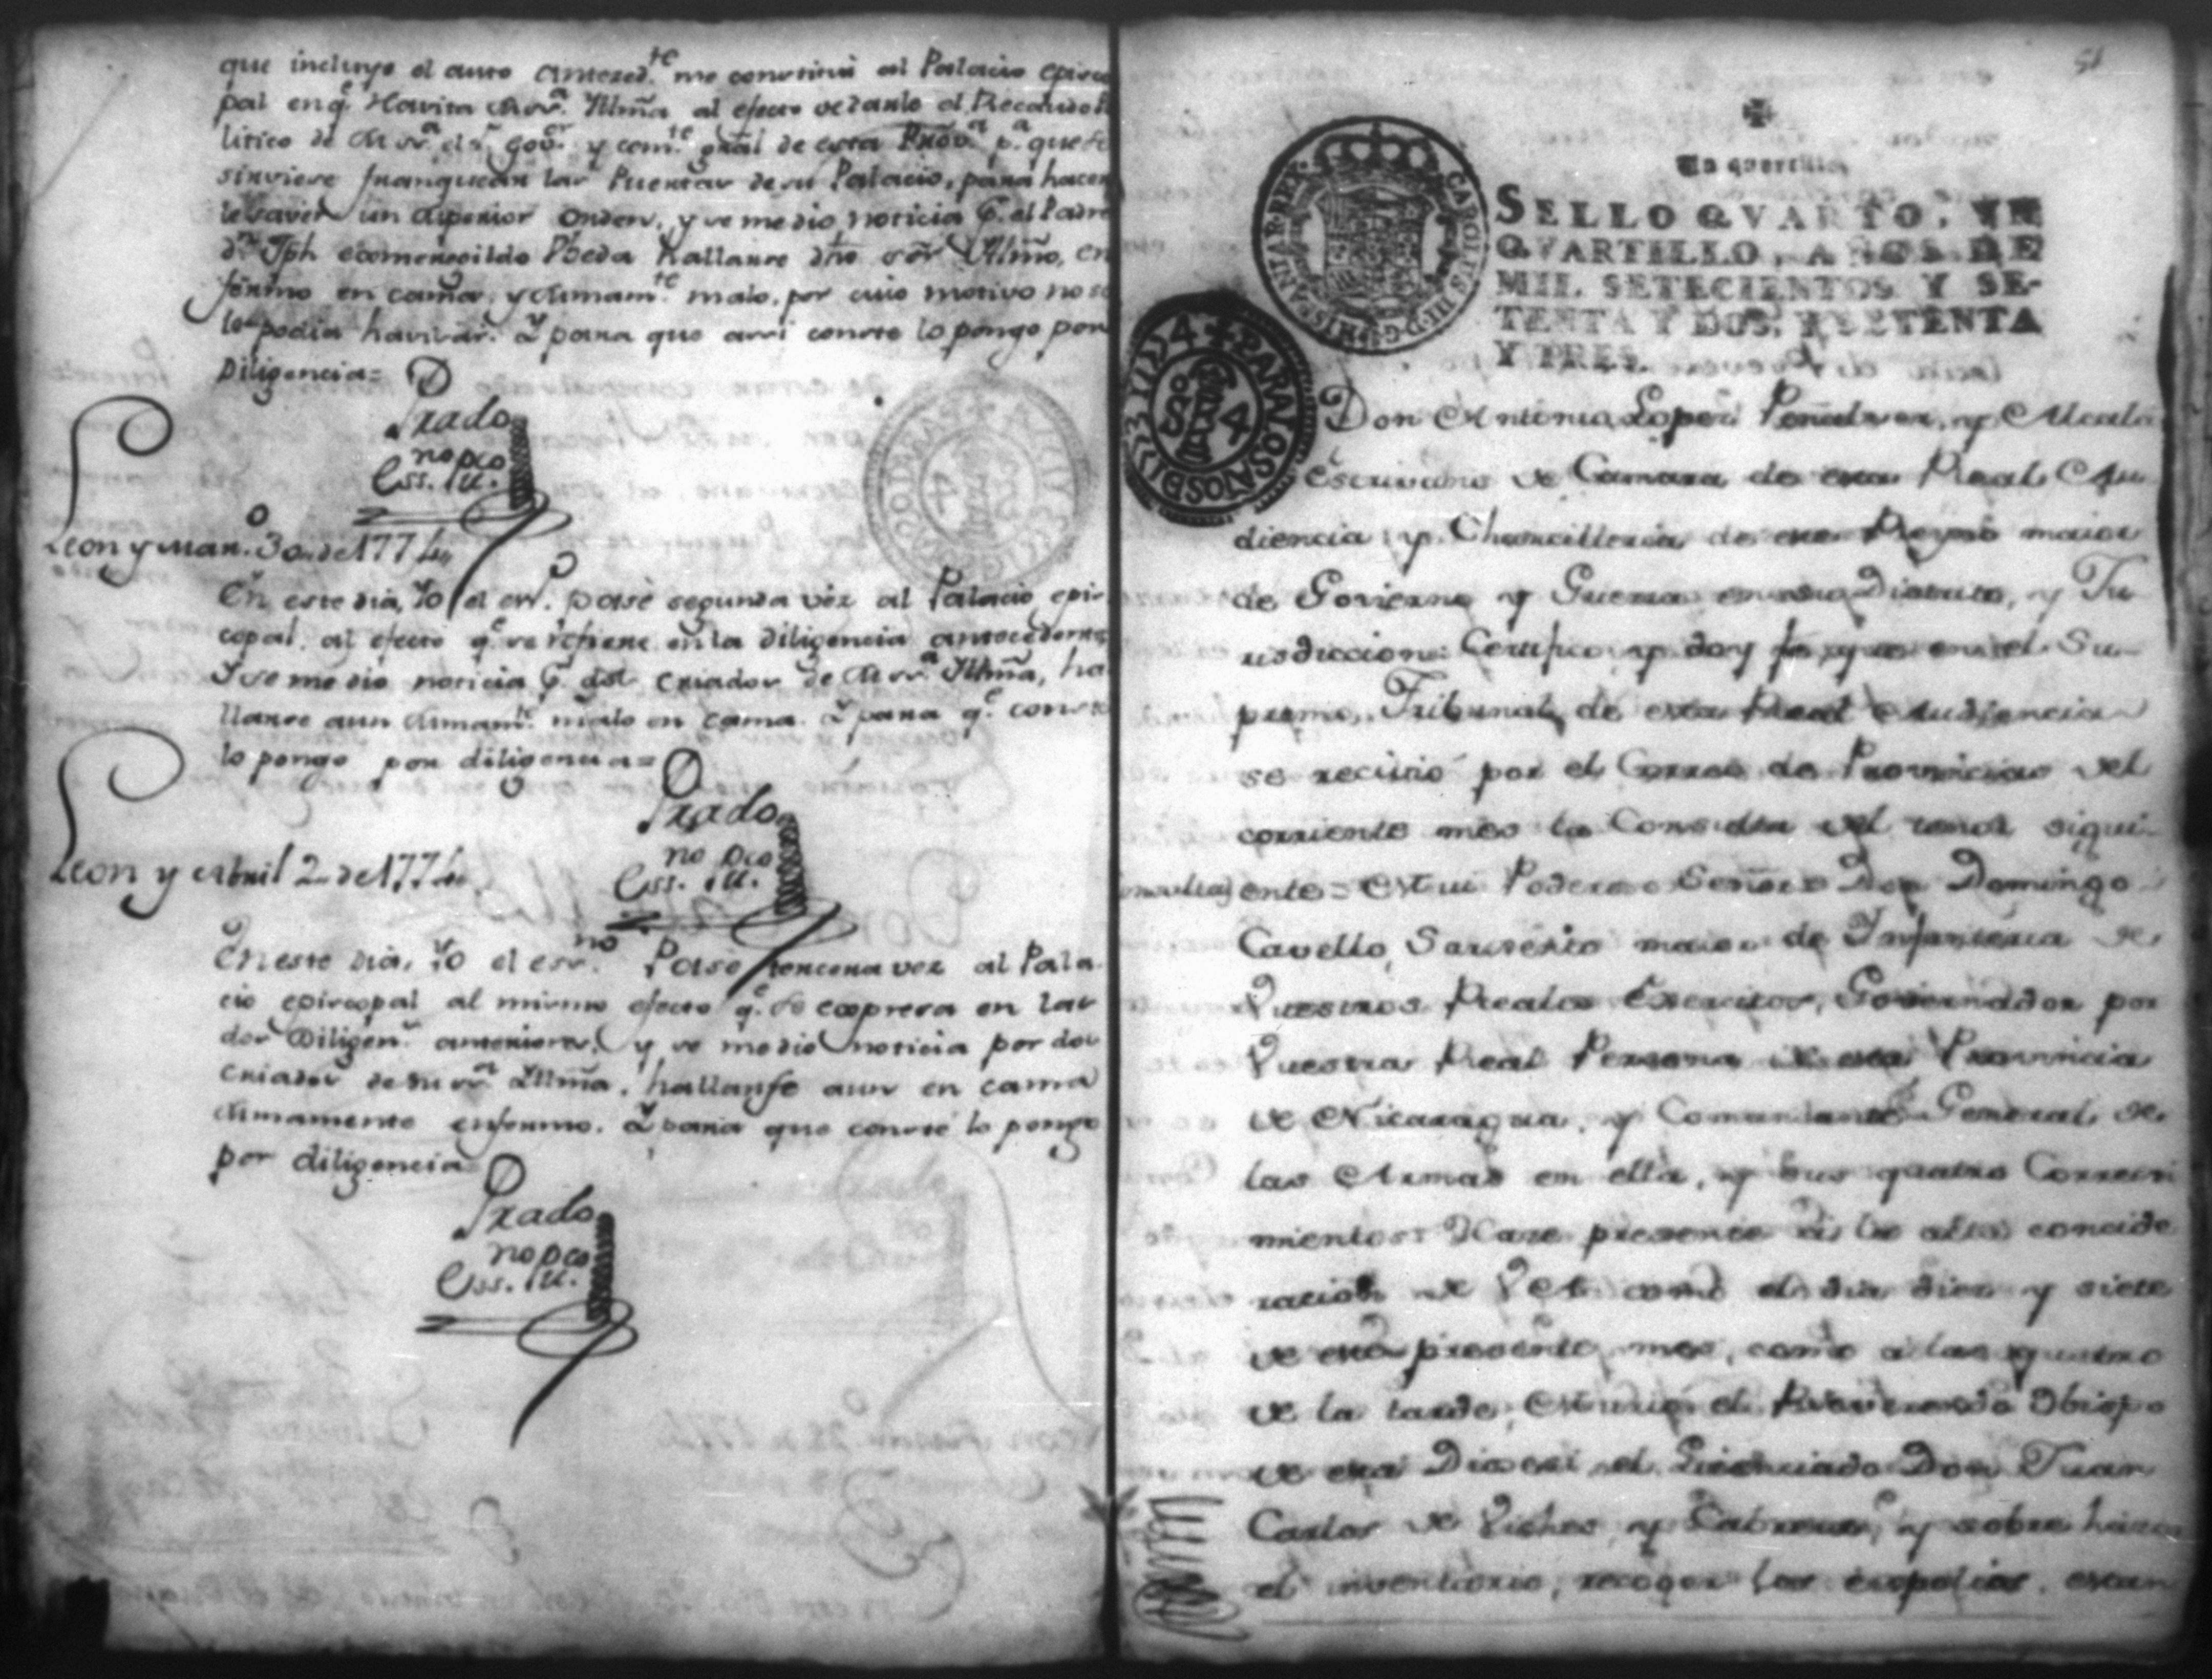 que incluye el auto anteced.te me constitui al Palacio episco
pal en q.e Havita su Sr.a Yllma al efecto de darle el Recaudo Po
litico de su Sr.a el S.r Gov.or y com.te gral de esta Prov.a p.a que se
sirviese franquear las Puertas de su Palacio, para hacer
le saver un superior orden, y se me dio noticia p.r el Padre
D.n Jph Hermenegildo Poveda hallarse dho sór Yllmo, en
fermo en cama, y sumam.te malo, por cuio motivo no se
le podia havisar. Y para que assi conste lo pongo por
Diligencia=
Prado
no pco
Ess. R.l
Leon y Mar.o 30,, de 1774,,
En este dia, Yo el ess.no pasé segunda vez al Palacio epis
copal, al efecto q.e se refiere en la diligencia antecedente
Y se me dio noticia p.r dos criados de su Sr.a Yllma, ha
llarse aun sumam.te malo en cama. Y para q.e conste
lo pongo por diligencia=
Prado
no pco
Ess. R.l
Leon y Abril 2,, de 1774,,
En este dia, Yo el ess.no Pasé tercera vez al Pala
cio episcopal al mismo efecto q.e se expresa en las
dos Diligen.s anteriores, y se me dio noticia por dos
criados de su Sr.a Yllma, hallarse aun en cama
sumamente enfermo. Y para que conste lo pongo
por diligencia=
Prado
no pco
Ess. R.l
51
Un quartillo
SELLO QVARTO, VN
QVARTILLO, AÑOS DE
MIL SETECIENTOS Y SE-
TENTA Y DOS, Y SETENTA
Y TRES.
CAROLUS III D G HISPANIAR REX
PARA LOS AÑOS DE 1773 Y 1774
Don Antonio Lopez Peñalver, y Alcala
Escrivano de Camara de esta Real Au
diencia y Chancilleria de este Reyno maior
de Govierno y Guerra en su Distrito, y Ju
risdiccion: Certifico y doy fe, que en el Su
premo Tribunal de esta Real Audiencia
se recivió por el Correo de Provincias del
corriente mes la Consulta del tenor sigui
Consulta) ente= Mui Poderoso Señor= Don Domingo
Cavello, Sarjento maior de Infanteria de
Vuestros Reales Exercitos, Governador por
Vuestra Real Persona de esta Provincia
de Nicaragua, y Comandante General de
las Armas en ella, y sus quatro Correxi
mientos: Hace presente á la alta concide
racion de V A. como el dia diez y siete
de este presente mes, como a las quatro
de la tarde, Murio el Reverendo Obispo
de esta Diocesi el Licenciado Don Juan
Carlos de Vilches y Cabrera, y sobre hacer
el inventario, recoger los expolios, estan